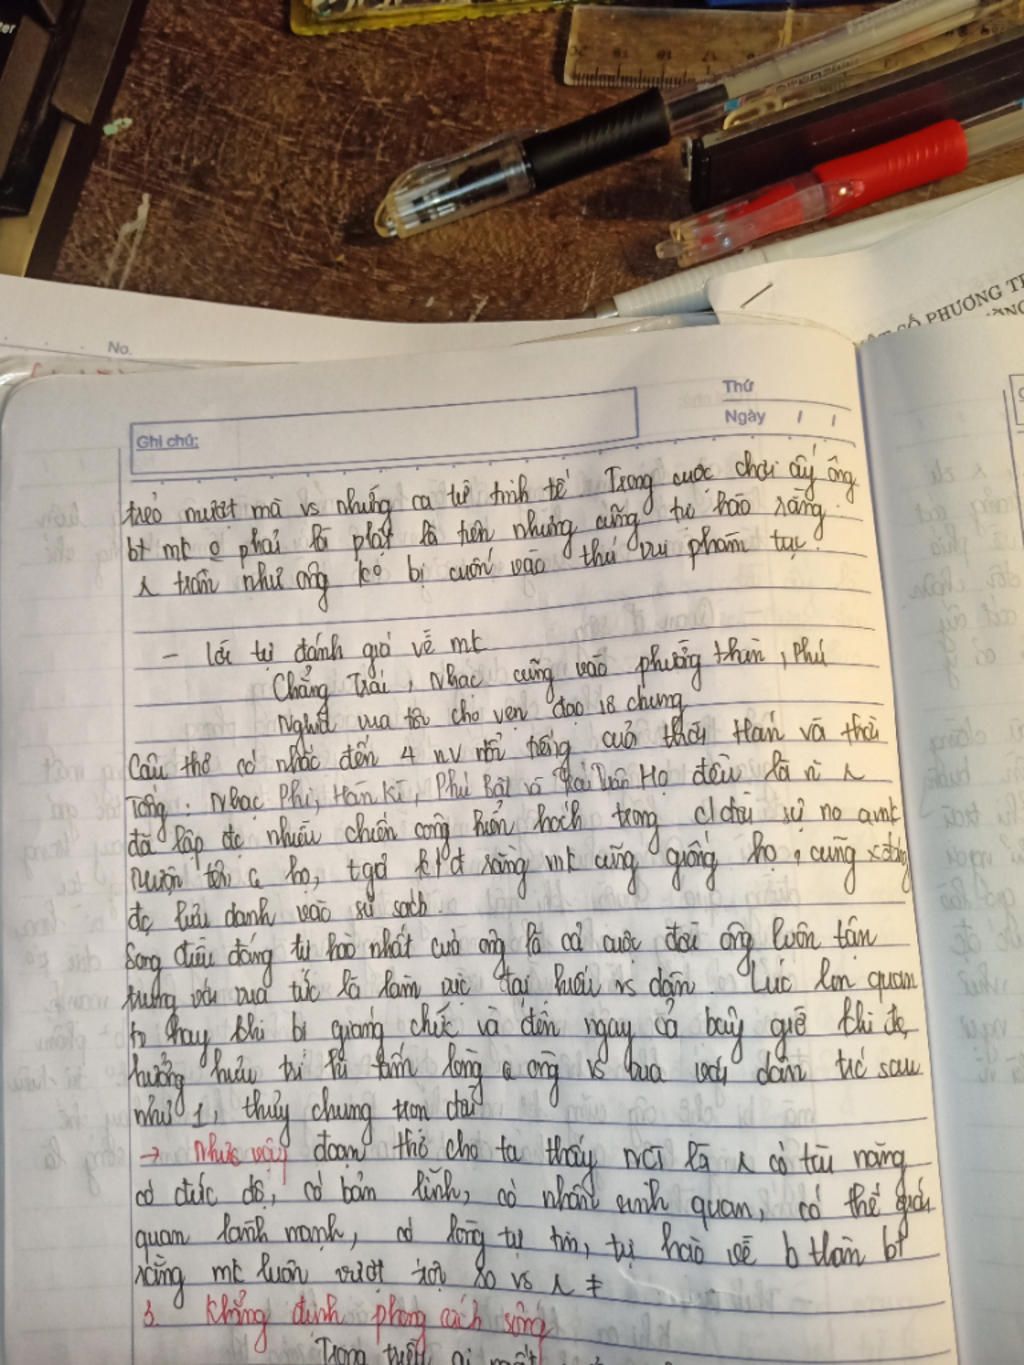 No.
CỔ PHƯƠNG
Thứ
Ngày / /
Ghi chú:
trẻo mượt mà vs những ca từ tinh tế. Trong cuộc chơi ấy ông
bt mk o phải là phật là tiên nhưng cũng tự hào rằng
trần như ông ko bị cuốn vào thú vui phàm tục.
- Lời tự đánh giá về mk
Chẳng Trái, Nhạc cũng vào phường Hàn, Phú
Nghĩa vua tôi cho vẹn đạo sơ chung
Câu thơ có nhắc đến 4 nv nổi tiếng của thời Hán và thời
Tống: Nhạc Phi, Hàn Kì, Phú Bật và Họ đều là
đã lập đc nhiều chiến công hiển hách trong
mượn tên họ, tgđ rằng mk cũng giống họ, cũng
đc lưu danh vào sử sách.
Song điều đáng tự hào nhất của ông là cả cuộc đời ông luôn tận
trung với vua tức là làm vs dân. Lúc làm quan
to hay khi bị giáng chức và đến ngay cả bây giờ khi đc
hưởng hưu trí thì tấm lòng ông vs vua với dân trc sau
như 1, thủy chung tron đời
→ Như vậy đoạn thơ cho ta thấy NCT là có tài năng
có đức độ, có bản lĩnh, có nhân sinh quan, có thế giới
quan lành mạnh, có lòng tự tin, tự hào về b thân bt
rằng mk luôn vượt trội so vs ≠
3. Khẳng định phong cách sống
Trong